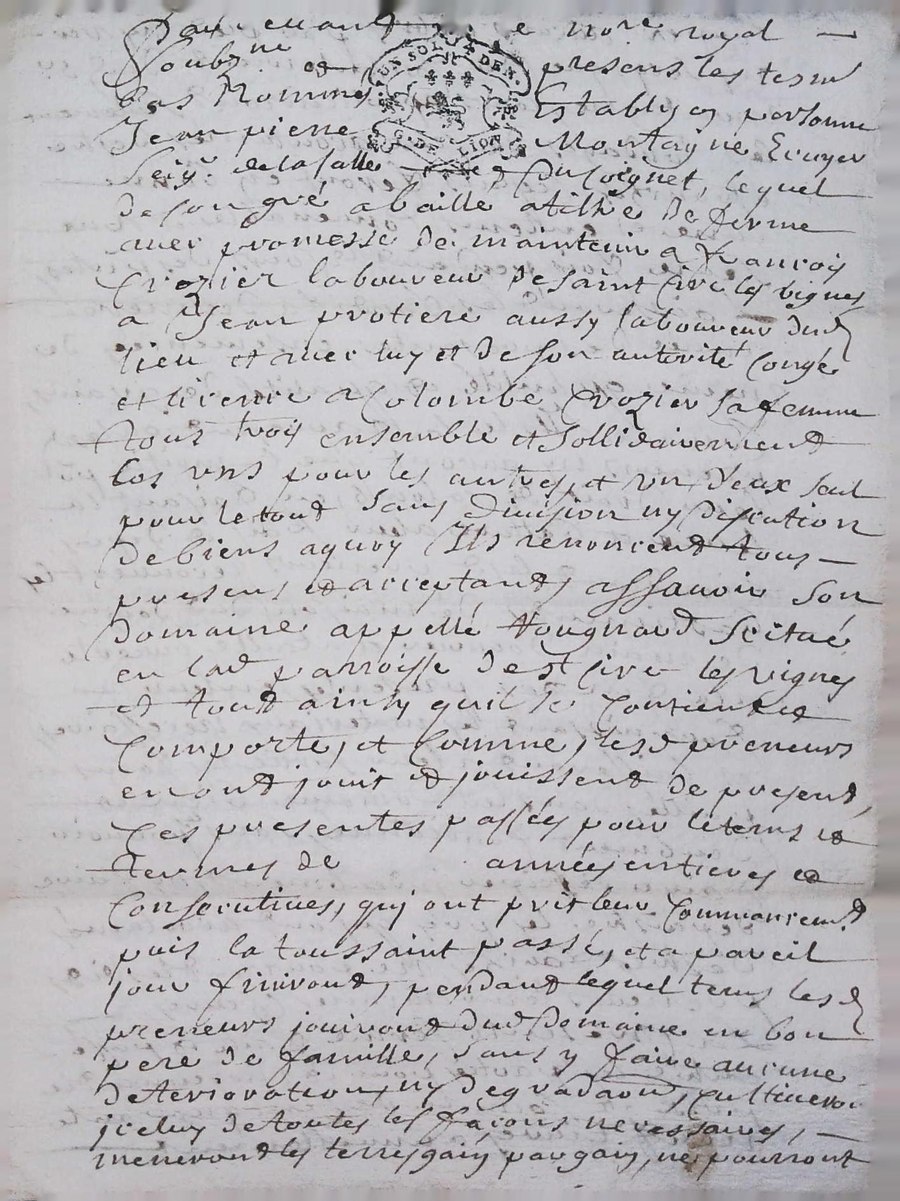 Pardevant le no.re royal
Soubz.ne et presens les tesm.
bas nommés Estably en personne
Jean pierre Montaigne Ecuyer
Seig.r de la salle et Du Soignet, lequel
de son gré a baillé a tiltre de ferme
avec promesse de maintenir a francois
Crozier laboureur de saint Cire les vignes
a Jean protiere aussy laboureur dud
lieu et avec luy et de son autorité congé
et licence a Colombe Crozier sa femme
tous trois ensemble et sollidairement
les uns pour les autres, et un d'eux seul
pour le tout sans division ny discution
de biens a quoy Ils renoncent tous
presens et acceptants assavoir son
Domaine appellé tougnaud scitué
en lad parroisse de st Cire les vignes
et tout ainsy qu'il se contient et
comporte, et comme, lesd preneurs
en ont jouit et jouissent de present,
Ces presentes passées pour le tems et
termes de années entieres et
Consecutives, qui ont pris leur commancem.t
puis la toussaint passé, et a pareil
jour finiront, pendant lequel tems lesd
preneurs jouiront dud Domaine en bon
pere de famille, sans y faire aucune
deterioration, ny degradaon, cultiveron
iceluy de toutes les façons necessaires,
meneront les terres gain par gain, ne pourront
UN SOL DEN.
G. DE LION